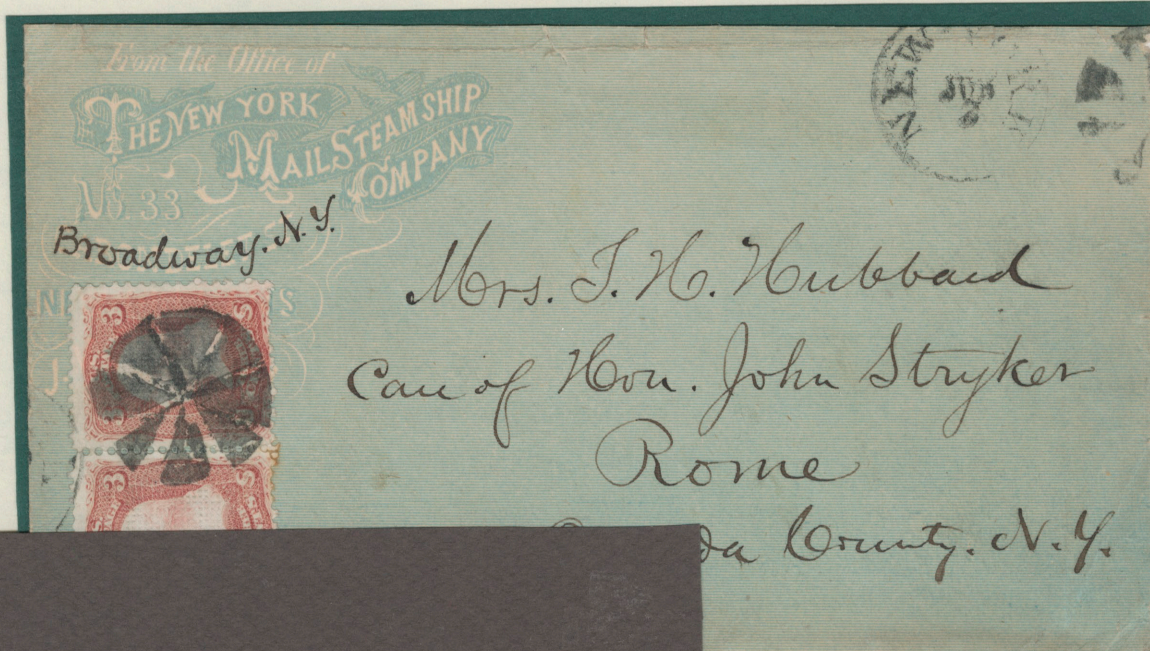 From the Office of
THE NEW YORK
MAIL STEAMSHIP
COMPANY
No. 33
Broadway. N.Y.
NEW
JUN
Mrs. T. H. Hubbard
Care of Hon. John Stryker
Rome
County. N.Y.
3
3